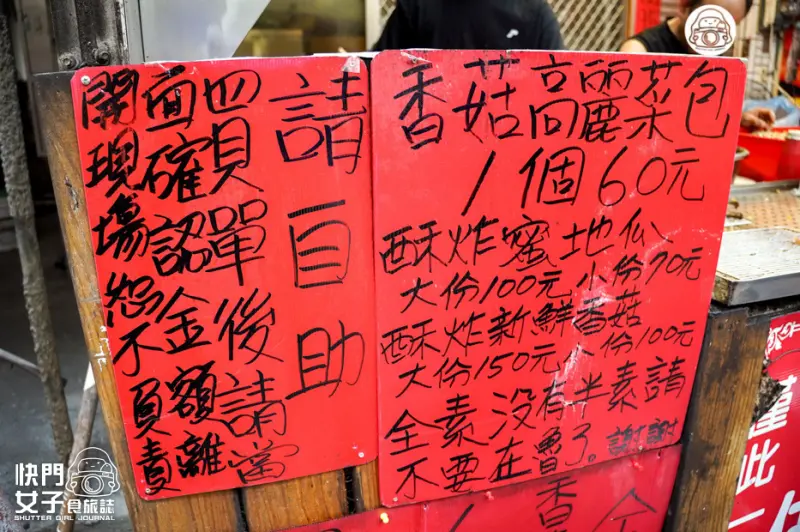 請自助
買單後請當
面確認金額離
開現場恕不負責
香菇高麗菜包
1個60元
酥炸蜜地瓜
大份100元小份70元
酥炸新鮮香菇
大份150元小份100元
全素没有半素請
不要在魯了。謝謝
謹此
快門
女子食旅誌
SHUTTER GIRL JOURNAL